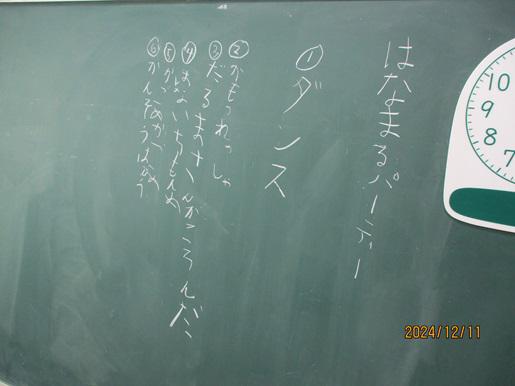 はなまるパーティー
①ダンス
②かもつれっしゃ
③だるまさんがころんだ
④はないちもんめ
⑤かごめかごめ
⑥かんそうはっぴょう
10
9
8
7
2024/12/11